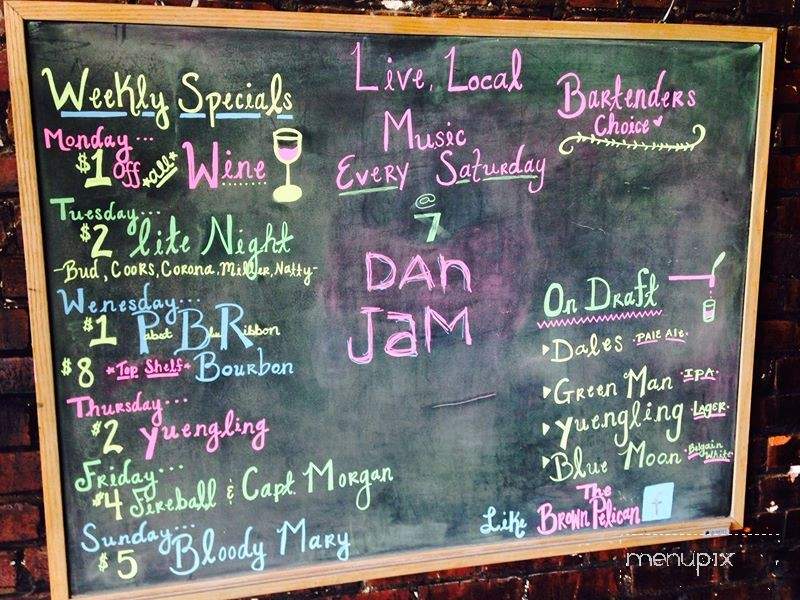 Weekly Specials
Monday...
$1 Off *All* Wine
Tuesday...
$2 lite Night
-Bud, Coors, Corona, Miller, Natty-
Wenesday...
$1 Pabst Blu Ribbon
$8 *Top Shelf* Bourbon
Thursday...
$2 Yuengling
Friday...
$4 Fireball & Capt. Morgan
Sunday...
$5 Bloody Mary
Live, Local
Music
Every Saturday
@
7
Dan
Jam
Bartenders
Choice
On Draft
Dales Pale Ale
Green Man IPA
Yuengling Lager
Blue Moon Belgain White
Like The Brown Pelican f
menupix